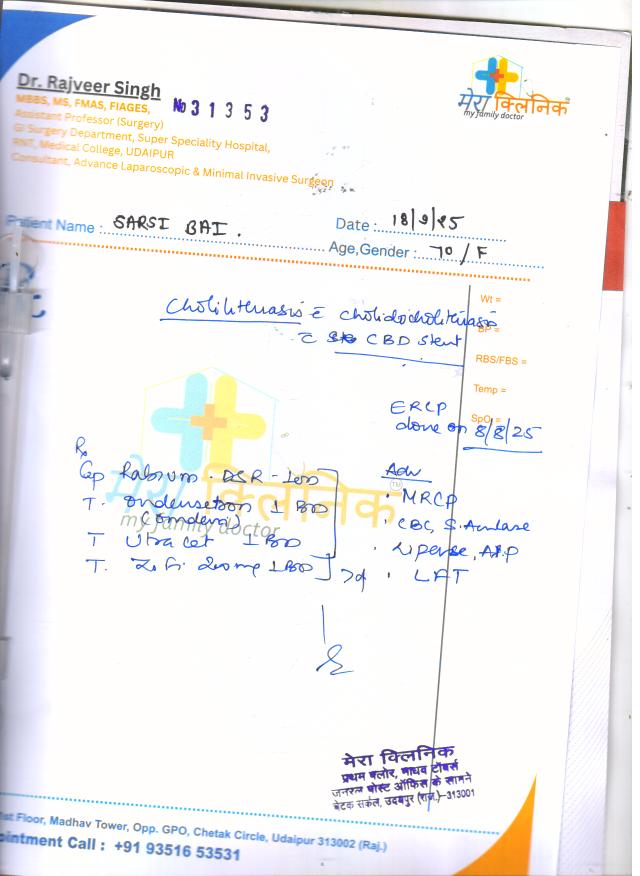 Dr. Rajveer Singh
MBBS, MS, FMAS, FIAGES, No 31353
Assistant Professor (Surgery)
GI Surgery Department, Super Speciality Hospital,
RNT, Medical College, UDAIPUR
Consultant, Advance Laparoscopic & Minimal Invasive Surgeon
मेरा क्लिनिक
my family doctor
Patient Name : SARSI BAI.
Date : 18/9/25
Age,Gender : 70/F
Wt =
BP =
RBS/FBS =
Temp =
SpO2 =
Cholilithiasis c̄ cholidocholithiasis
c̄ CBD stent
ERCP
done on 8/8/25
Rx
Cap Rabium-DSR - 1 OD
T. Ondensetron 1 BD
T Utracet 1 BD
T. Zifi 200mg 1 BD
7d
Adv
MRCP
CBC, S. Amylase
Lipase,
LFT
मेरा क्लिनिक TM
my family doctor
मेरा क्लिनिक
प्रथम फ्लोर, माधव टॉवर्स
जनरल पोस्ट ऑफिस के सामने
चेटक सर्कल, उदयपुर (राज.)-313001
1st Floor, Madhav Tower, Opp. GPO, Chetak Circle, Udaipur 313002 (Raj.)
ointment Call : +91 93516 53531